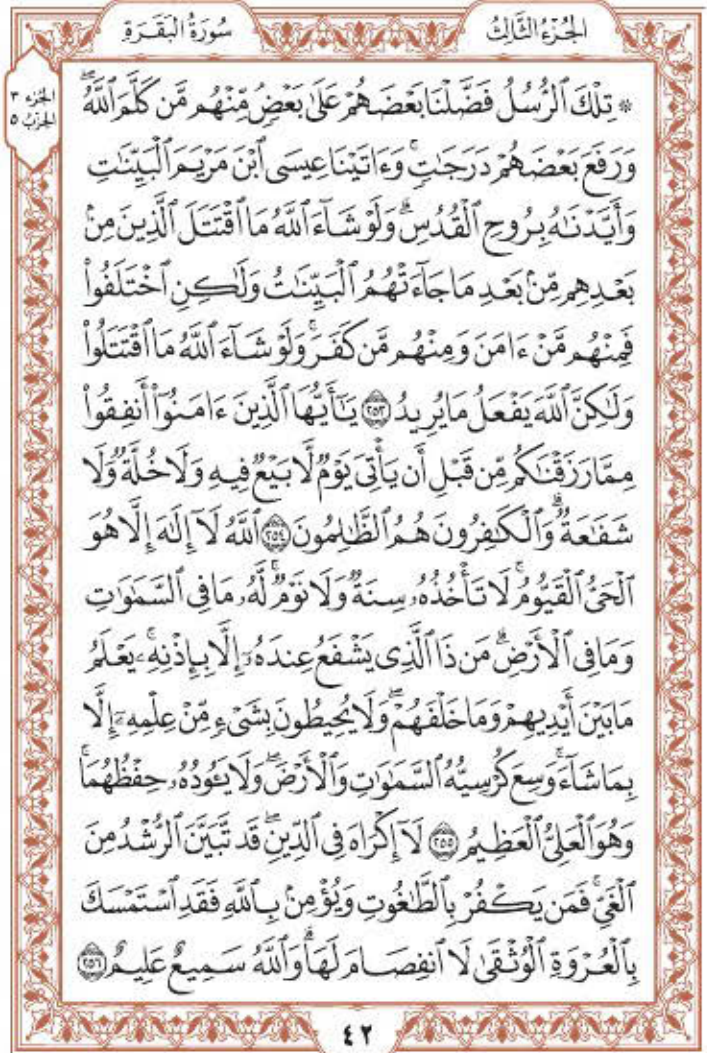 سُورَةُ الْبَقَرَةِ
الجُزْءُ الثَّالِثُ
الجزء ٣
الحزب ٥
۞ تِلْكَ ٱلرُّسُلُ فَضَّلْنَا بَعْضَهُمْ عَلَىٰ بَعْضٍۘ مِّنْهُم مَّن كَلَّمَ ٱللَّهُۖ
وَرَفَعَ بَعْضَهُمْ دَرَجَٰتٍۚ وَءَاتَيْنَا عِيسَى ٱبْنَ مَرْيَمَ ٱلْبَيِّنَٰتِ
وَأَيَّدْنَٰهُ بِرُوحِ ٱلْقُدُسِۗ وَلَوْ شَآءَ ٱللَّهُ مَا ٱقْتَتَلَ ٱلَّذِينَ مِنۢ
بَعْدِهِم مِّنۢ بَعْدِ مَا جَآءَتْهُمُ ٱلْبَيِّنَٰتُ وَلَٰكِنِ ٱخْتَلَفُوا۟
فَمِنْهُم مَّنْ ءَامَنَ وَمِنْهُم مَّن كَفَرَۚ وَلَوْ شَآءَ ٱللَّهُ مَا ٱقْتَتَلُوا۟
وَلَٰكِنَّ ٱللَّهَ يَفْعَلُ مَا يُرِيدُ ٢٥٣ يَٰٓأَيُّهَا ٱلَّذِينَ ءَامَنُوٓا۟ أَنفِقُوا۟
مِمَّا رَزَقْنَٰكُم مِّن قَبْلِ أَن يَأْتِىَ يَوْمٌ لَّا بَيْعٌ فِيهِ وَلَا خُلَّةٌ وَلَا
شَفَٰعَةٌۗ وَٱلْكَٰفِرُونَ هُمُ ٱلظَّٰلِمُونَ ٢٥٤ ٱللَّهُ لَآ إِلَٰهَ إِلَّا هُوَ
ٱلْحَىُّ ٱلْقَيُّومُۚ لَا تَأْخُذُهُۥ سِنَةٌ وَلَا نَوْمٌۚ لَّهُۥ مَا فِى ٱلسَّمَٰوَٰتِ
وَمَا فِى ٱلْأَرْضِۗ مَن ذَا ٱلَّذِى يَشْفَعُ عِندَهُۥٓ إِلَّا بِإِذْنِهِۦۚ يَعْلَمُ
مَا بَيْنَ أَيْدِيهِمْ وَمَا خَلْفَهُمْۖ وَلَا يُحِيطُونَ بِشَىْءٍ مِّنْ عِلْمِهِۦٓ إِلَّا
بِمَا شَآءَۚ وَسِعَ كُرْسِيُّهُ ٱلسَّمَٰوَٰتِ وَٱلْأَرْضَۖ وَلَا يَـُٔودُهُۥ حِفْظُهُمَاۚ
وَهُوَ ٱلْعَلِىُّ ٱلْعَظِيمُ ٢٥٥ لَآ إِكْرَاهَ فِى ٱلدِّينِۖ قَد تَّبَيَّنَ ٱلرُّشْدُ مِنَ
ٱلْغَىِّۚ فَمَن يَكْفُرْ بِٱلطَّٰغُوتِ وَيُؤْمِنۢ بِٱللَّهِ فَقَدِ ٱسْتَمْسَكَ
بِٱلْعُرْوَةِ ٱلْوُثْقَىٰ لَا ٱنفِصَامَ لَهَاۗ وَٱللَّهُ سَمِيعٌ عَلِيمٌ ٢٥٦
٤٢